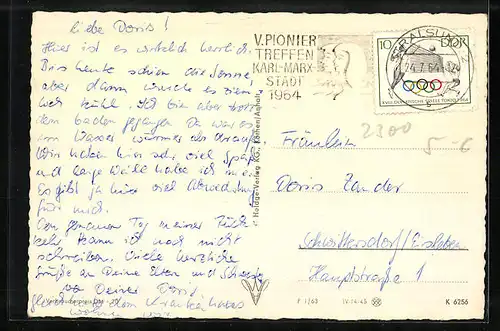 Liebe Doris!
Hier ist es wirklich herrlich.
Bis heute schien die Sonne,
aber dann wurde es ein
kühl. Ich bin aber trotz-
dem baden gegangen. Da war es
am Wasser wärmer als draußen
Wir haben hier sehr viel Spaß
und lange Weile habe ich nie.
Es gibt ja hier viel Abwechslung
für mich.
Den genauen Tag meiner Rück-
kehr kann ich noch nicht
schreiben. Viele herzliche
Grüße an Deine Eltern und
Deiner Doris
V. PIONIER
TREFFEN
KARL-MARX-
STADT
1964
24.7.64
10
DDR
XVIII. OLYMPISCHE SPIELE TOKYO 1964
2300
5-6
Heldge-Verlag KG., Köthen/Anhalt
Fräulein
Doris Zander
Schwittersdorf/Eisleben
Hauptstraße 1
P 1/63 IV-14-45 K 6256